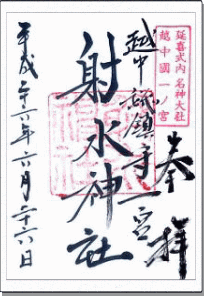 延喜式内 名神大社
越中國一ノ宮
奉拝
越中総鎮守一宮
射水神社
平成二十六年六月二十六日